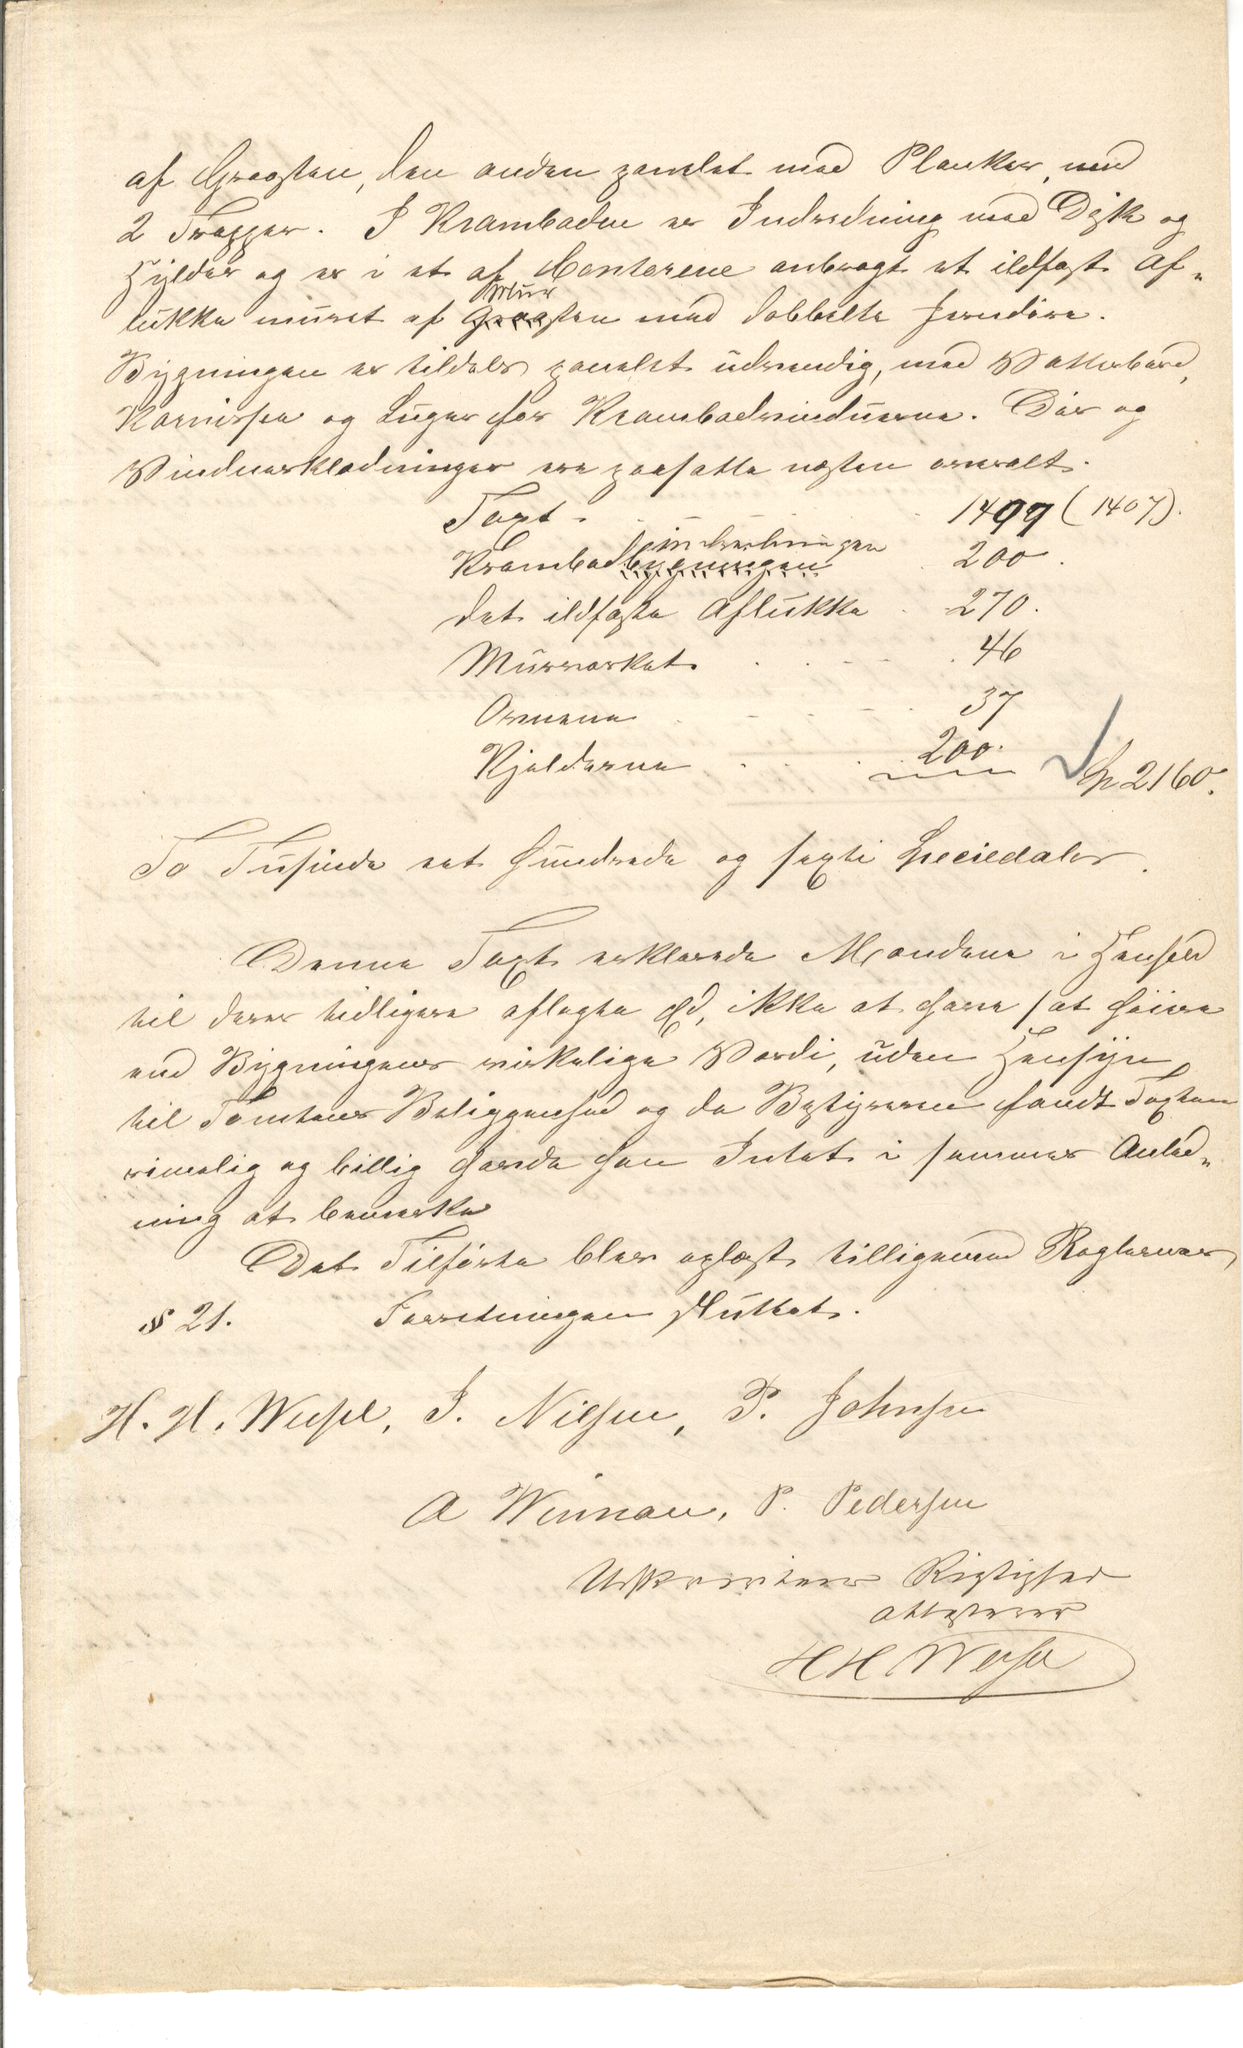 af Graasten, den anden panelet med Planker, med
2 Trapper. I Kramboden er Indredning med Disk og
Hylder og er i et af Contorene anbragt et ildfast Af-
lukke muret af Graasten Mur med dobbelte Jerndøre.
Bygningen er tildels panelet udvendig, med Vatterbord,
Karnisse og Luger for Krambodvinduerne. Dør og
Vindueklædninger ere paasatte næsten overalt.
Taxt 1499 (1407).
Krambodbygningen indredningen 200.
det ildfaste Aflukke 270.
Murværket 46
Ovnene 37
Kjelderne 200. Sp 2160.
To Tusinde eet hundrede og sexti Speciedaler.
Denne Taxt erklærede Mændene i Henhold
til deres tidligere aflagte Ed, ikke at være sat høiere
end Bygningens virkelige Værdi, uden Hensyn
til Tomtens Beliggenhed og da Bestyreren fandt Taxten
rimelig og billig havde han Intet i saamaade Anled-
ning at bemærke
Det Tilførte blev oplæst tilligemed Reglernes
§ 21. Forretningen sluttet.
H. H. Wesel, J. Nilsen, P. Johnsen
A Winnan, P. Pedersen
Udskriftens Rigtighed
attesterer
H H Wesel